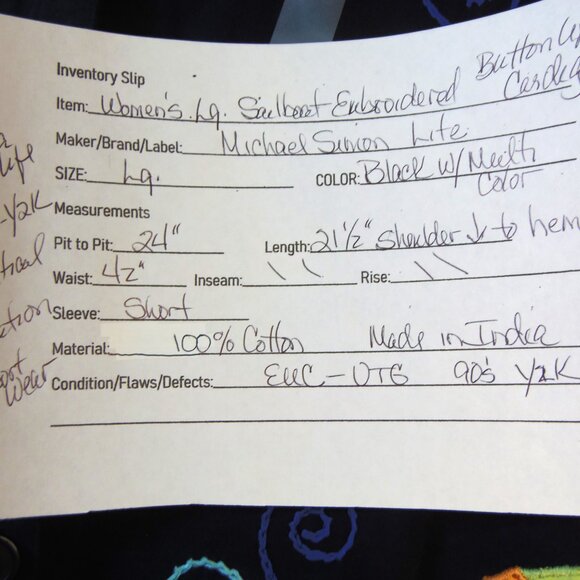 Inventory Slip
Button Up
Item: Women's Lg. Sailboat Embroidered Cardig
Maker/Brand/Label: Michael Simon Life
SIZE: Lg. COLOR: Black W/ Multi
Color
Measurements
-Y2K
Pit to Pit: 24" Length: 21 1/2" Shoulder ↓ to hem
tical
Waist: 42" Inseam: \ \ Rise: \ \
Sleeve: Short
Material: 100% Cotton Made in India
Condition/Flaws/Defects: EUC-OTG 90's Y2K
Wear